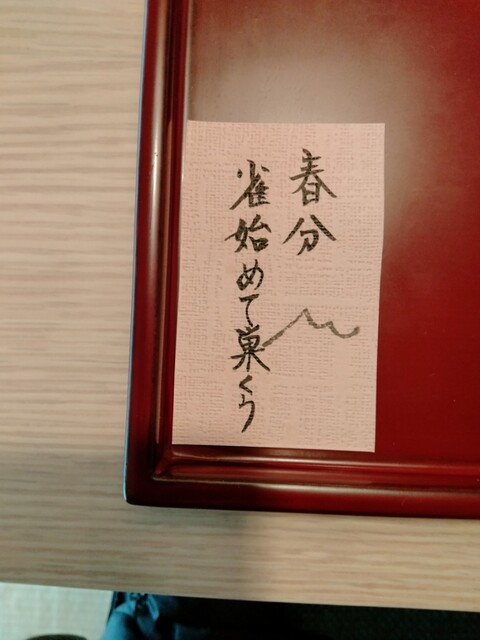 春分
雀始めて巣くう